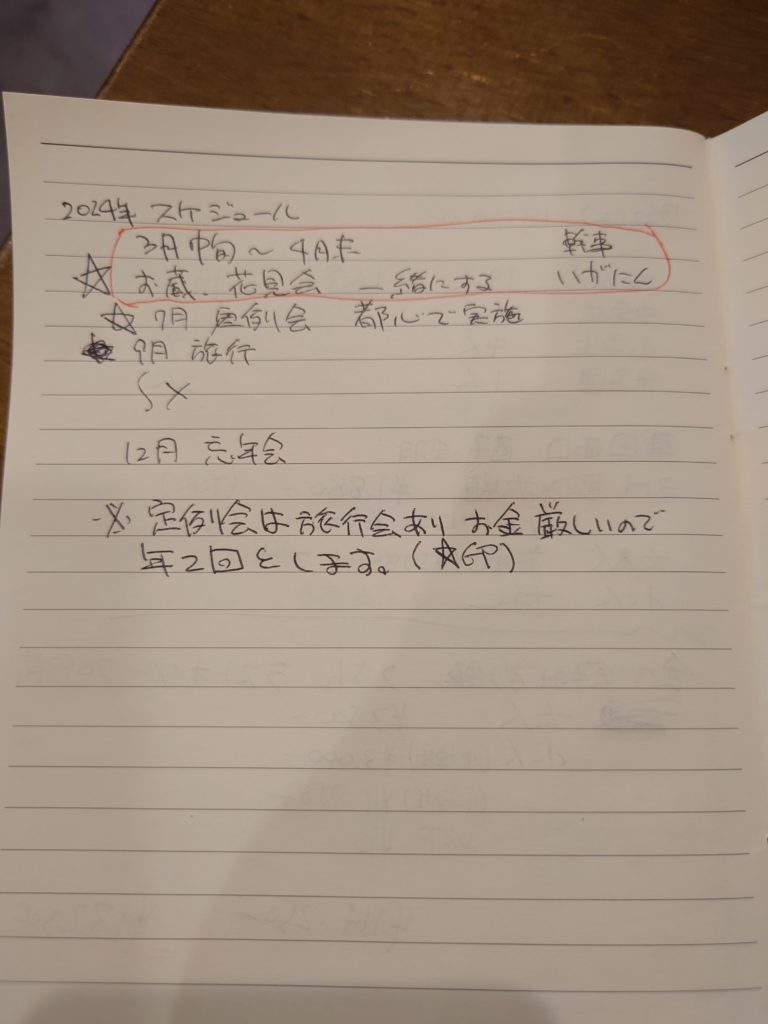 2024年 スケジュール
3月中旬〜4月末 幹事
☆ お蔵、花見会 一緒にする いがにん
☆ 7月 定例会 都心で実施
9月 旅行
12月 忘年会
※ 定例会は旅行会あり お金厳しいので
年2回とします。(★印)